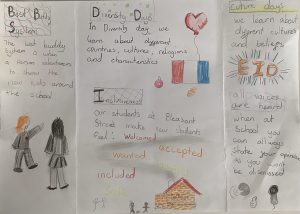 Best Buddy
System
The best buddy
system is when
a person volenteers
to show the
new kids around
the school
Diversity Day
In Diversity day we
learn about different
countries, cultures, relegions
and characteristics
Inclusiveness
our students at Pleasant
Street make new students
Feel: Welcomed
wanted accepted
included
Safe
Culture days
we learn about
different cultures
and beliefs
EID
all voices
are heard
when at
School you
can always
Share your opinion
as you wont
be dismissed